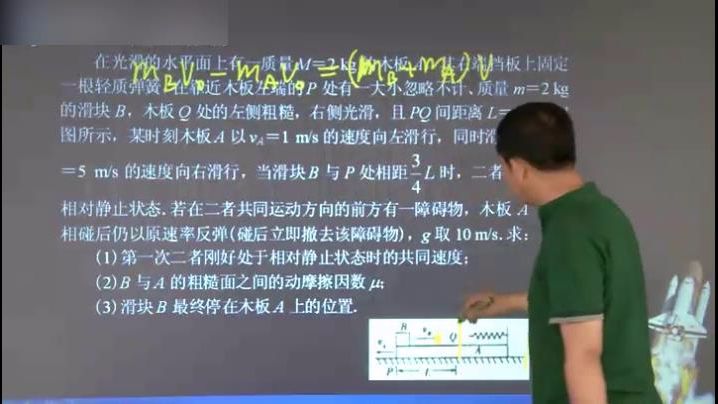 m_B v_0 - m_A v_0 = (m_B + m_A) v
在光滑的水平面上有一质量M=2 kg的木板A,其右端挡板上固定
一根轻质弹簧,在靠近木板左端的P处有一大小忽略不计、质量m=2 kg
的滑块B,木板Q处的左侧粗糙,右侧光滑,且PQ间距离L=
图所示,某时刻木板A以v_A=1 m/s的速度向左滑行,同时滑
=5 m/s的速度向右滑行,当滑块B与P处相距3/4L时,二者
相对静止状态.若在二者共同运动方向的前方有一障碍物,木板A
相碰后仍以原速率反弹(碰后立即撤去该障碍物),g取10 m/s.求:
(1)第一次二者刚好处于相对静止状态时的共同速度;
(2)B与A的粗糙面之间的动摩擦因数μ;
(3)滑块B最终停在木板A上的位置.
B Q A
P L